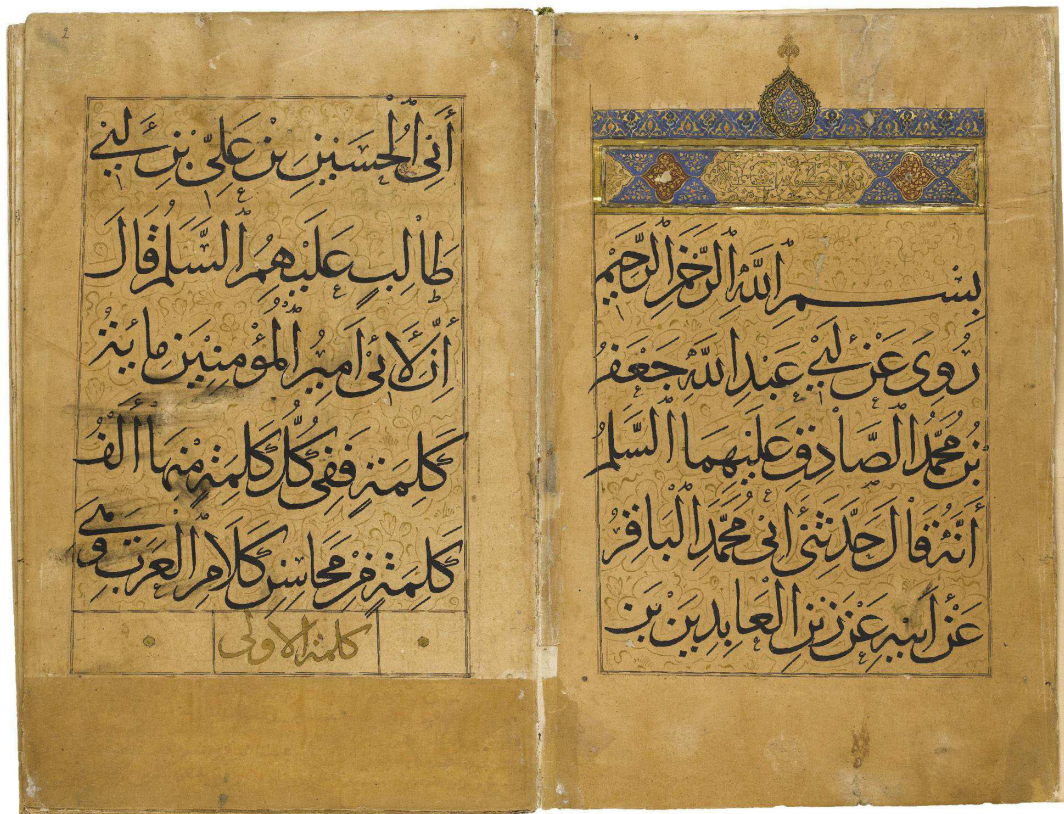 بِسْمِ اللَّهِ الرَّحْمَنِ الرَّحِيمِ
رُوِيَ عَنْ أَبِي عَبْدِ اللَّهِ جَعْفَرِ
بْنِ مُحَمَّدٍ الصَّادِقِ عَلَيْهِمَا السَّلَمُ
أَنَّهُ قَالَ حَدَّثَنِي أَبِي مُحَمَّدٌ الْبَاقِرُ
عَنْ أَبِيهِ عَنْ زَيْنِ الْعَابِدِينَ بْنِ
أَبِي الْحُسَيْنِ بْنِ عَلِيِّ بْنِ أَبِي
طَالِبٍ عَلَيْهِمُ السَّلَمُ قَالَ
إِنَّ لِأَبِي أَمِيرِ الْمُؤْمِنِينَ مِائَةَ
كَلِمَةٍ فَفِي كُلِّ كَلِمَةٍ مِنْهَا أَلْفُ
كَلِمَةٍ مِنْ مَحَاسِنِ كَلَامِ الْعَرَبِ وَهِيَ
كلمة الاولى